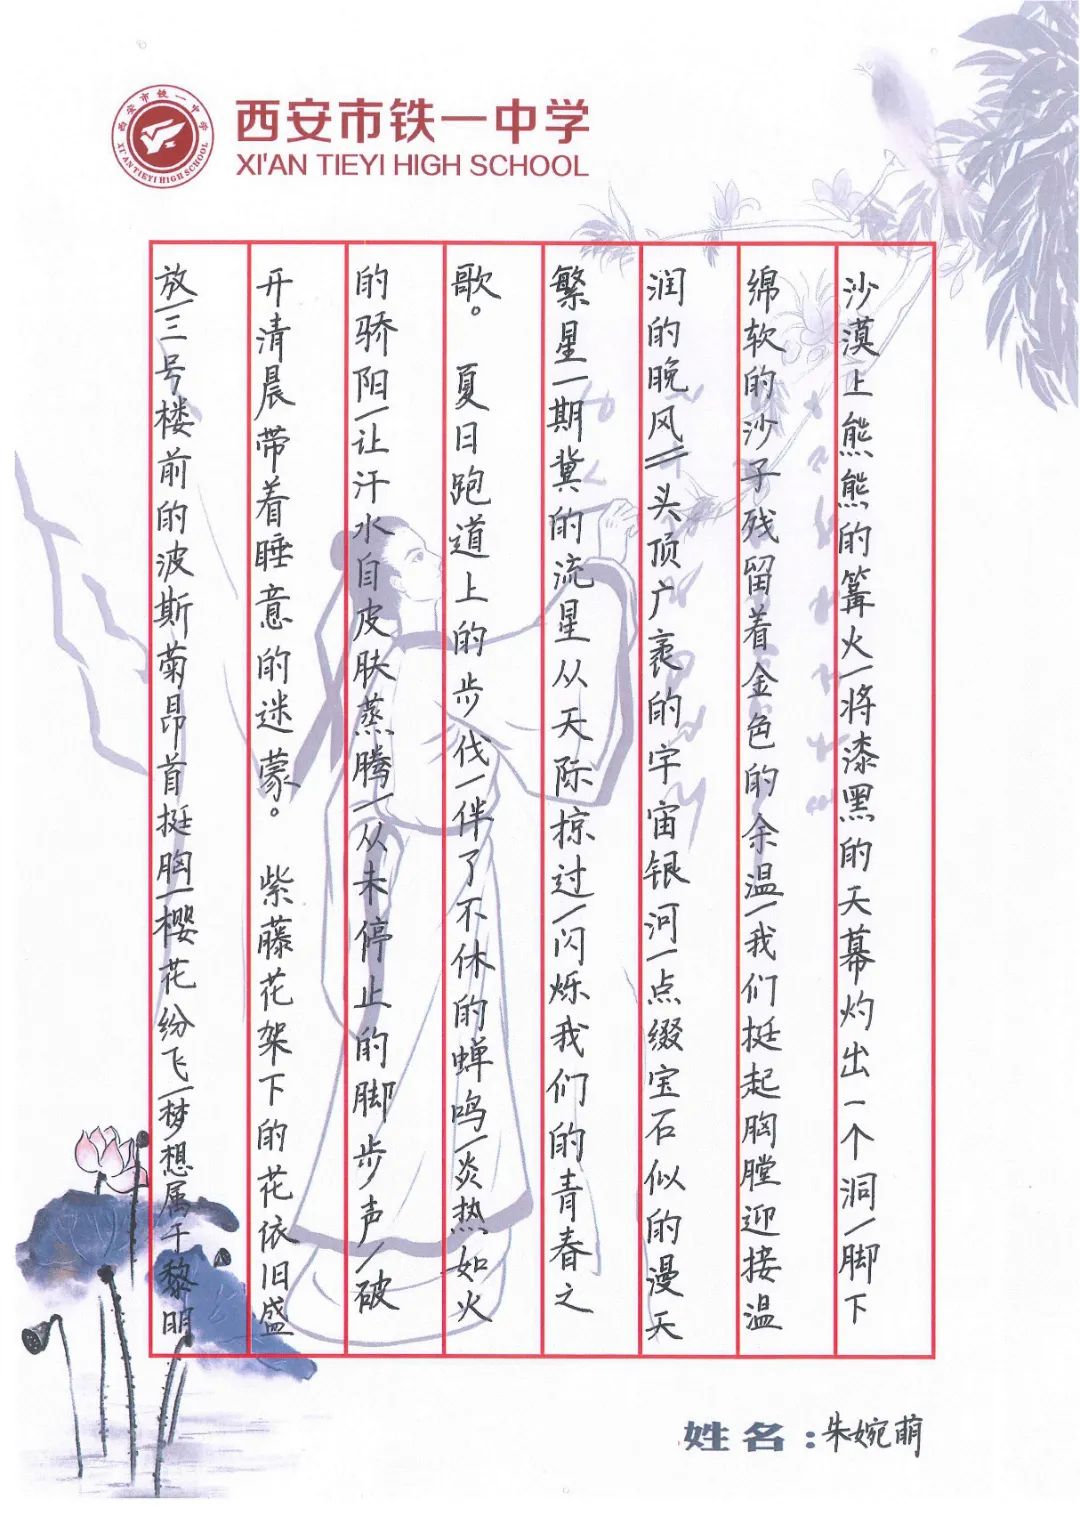 西安市铁一中学
XI'AN TIEYI HIGH SCHOOL
西安市铁一中学
XI'AN TIEYI HIGH SCHOOL
沙漠上熊熊的篝火/将漆黑的天幕灼出一个洞/脚下
绵软的沙子残留着金色的余温/我们挺起胸膛迎接温
润的晚风//头顶广袤的宇宙银河/点缀宝石似的漫天
繁星/期冀的流星从天际掠过/闪烁我们的青春之
歌。 夏日跑道上的步伐/伴了不休的蝉鸣/炎热如火
的骄阳/让汗水自皮肤蒸腾/从未停止的脚步声/破
开清晨带着睡意的迷蒙。 紫藤花架下的花依旧盛
放/三号楼前的波斯菊昂首挺胸/樱花纷飞/梦想属于黎明
姓名:朱婉萌